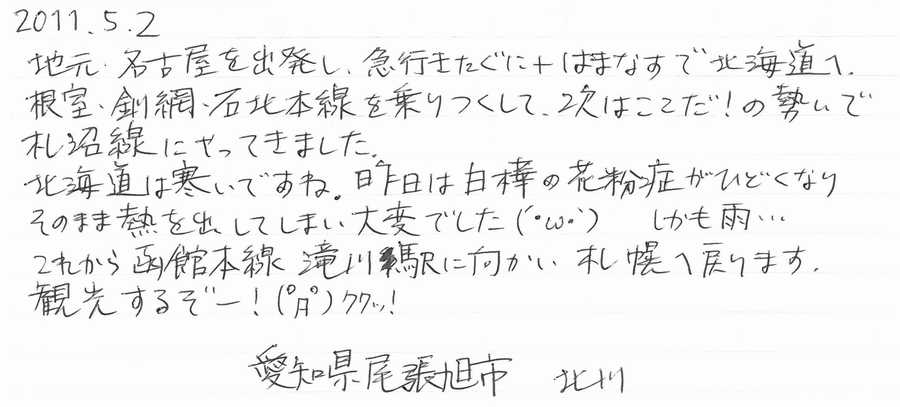 2011.5.2
地元・名古屋を出発し、急行きたぐに+はまなすで北海道へ。
根室・釧網・石北本線を乗りつくして、次はここだ!の勢いで
札沼線にやってきました。
北海道は寒いですね。昨日は白樺の花粉症がひどくなり
そのまま熱を出してしまい大変でした(´・ω・`) しかも雨…
これから函館本線 滝川駅に向かい 札幌へ戻ります。
観光するぞー!(゚Д゚)クワッ!
愛知県尾張旭市 北川